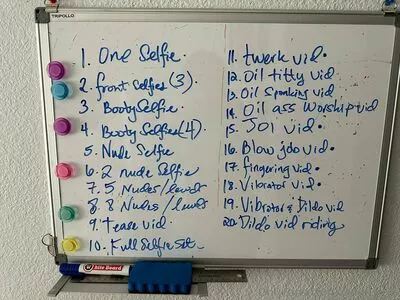 TRIPOLLO
1. One Selfie.
2. front selfies (3).
3. Booty Selfie.
4. Booty Selfies (4)
5. Nude Selfie
6. 2 nude Selfie
7. 5 Nudes/lewds
8. 8 Nudes/lewds
9. tease vid.
10. Full Selfie Set.
11. twerk vid.
12. Oil titty vid
13. Oil Spanking vid
14. Oil ass Worship vid
15. JOI vid.
16. Blow jdo vid.
17. fingering vid.
18. Vibrator vid.
19. Vibrator & Dildo vid
20. Dildo vid riding
Board